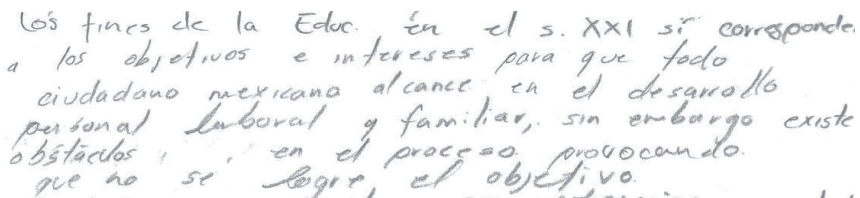 Los fines de la Educ. en el s. XXI si corresponde
a los objetivos e intereses para que todo
ciudadano mexicano alcance en el desarrollo
personal laboral y familiar, sin embargo existe
obstáculos , , en el proceso provocando.
que no se logre, el objetivo.